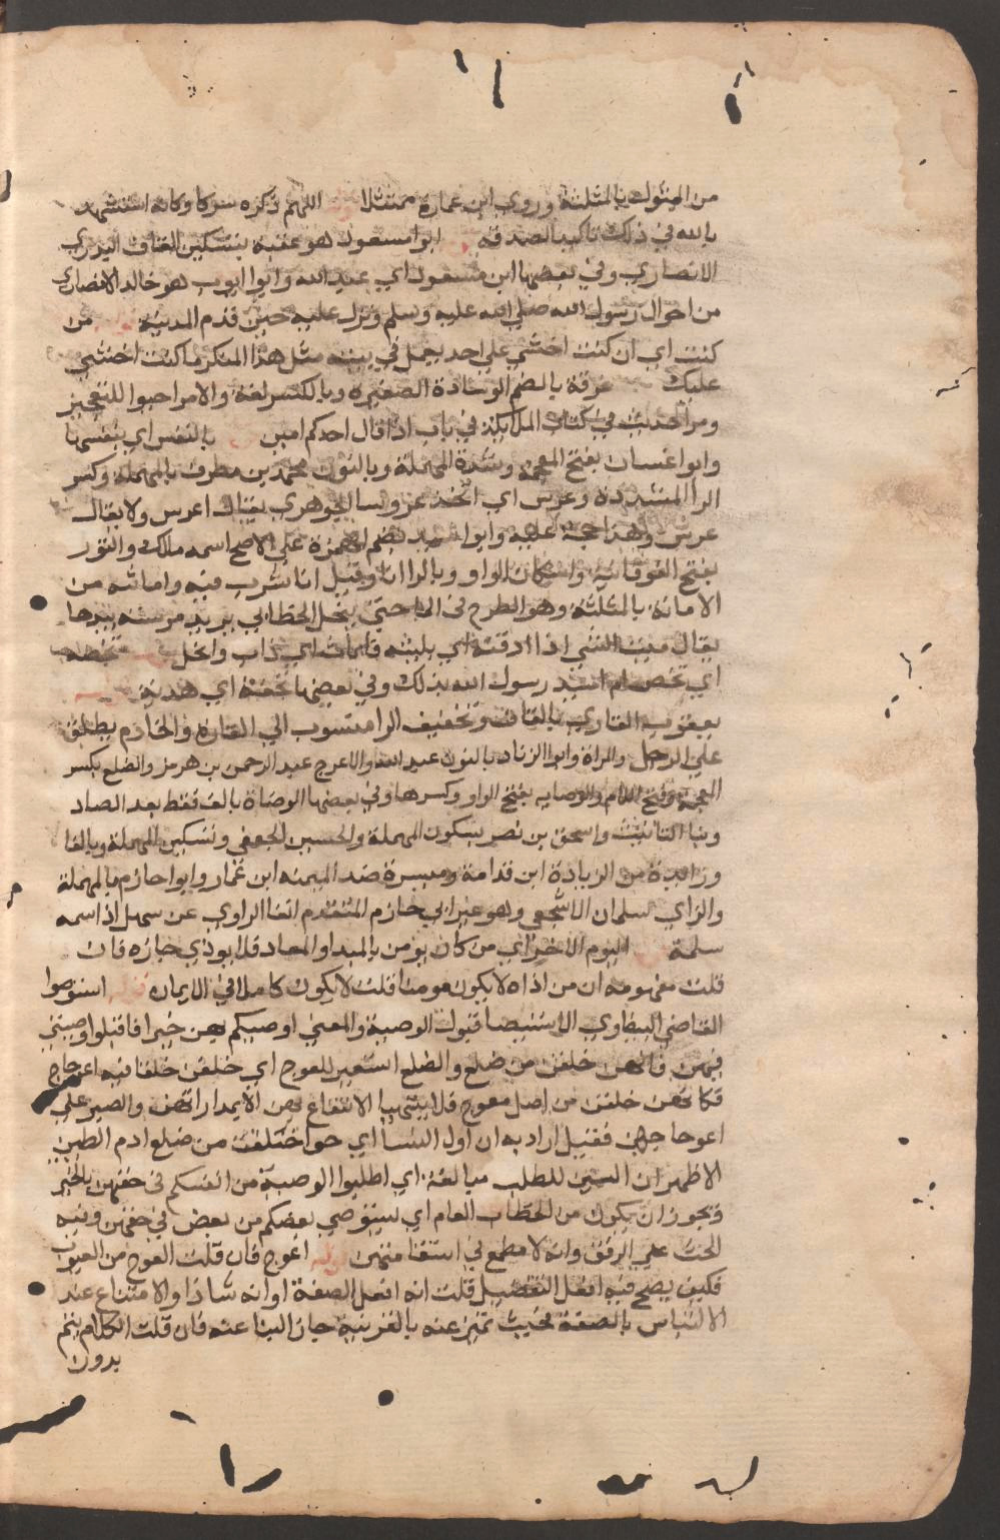 من المثول بالمثلثة وروى ابن عمارة ممتثلا اللهم ذكره تبركا وكانه استشهد
بالله في ذلك تاكيدا لصدقه ابوا مسعود هو عقبة بتسكين القاف البدري
الانصاري وفي بعضها ابن مسعود اي عبد الله وابوا ايوب هو خالد الانصاري
من اخوال رسول الله صلى الله عليه وسلم ونزل عليه حين قدم المدينة من
كنت اي ان كنت اخشى على احد يعمل في بيته مثل هذا المنكر ما كنت اخشى
عليك نمرقة بالضم الوسادة الصغيره وبالكسر لغة والامر احيوا للتعجيز
ومر الحديث في كتاب الملايكة في باب اذا قال احدكم امين بالنفس اي بنفسها
وابوا غسان بفتح المعجمة وشدة المهملة وبالنون محمد بن مطرف بالمهملة وكسر
الرا المشددة وعرس اي اتخذ عروسا الجوهري يقال اعرس ولا يقال
عرس وهذا حجة عليه وابوا اسيد بضم الهمزة على الاصح اسمه مالك والتور
بفتح الفوقانية واسكان الواو وبالرا انا وقيل انا يشرب فيه واماثته من
الاماثة بالمثلثة وهو الطرح في الما حتى ينحل الخطابي يريد مرسته بيدها
يقال ميث الشي اذا ادفته اي بللته فانماث اي ذاب وانحل تخصه
اي تخص ام اسيد رسول الله بذلك وفي بعضها تحفة اي هدية
يعقوب القاري بالقاف وتخفيف الرا منسوب الى القارة والخادم يطلق
على الرجل والمراة وابوا الزناد بالنون عبد الله والاعرج عبد الرحمن بن هرمز والضلع بكسر
المعجمة وفتح اللام والوصايه بفتح الواو وكسرها وفي بعضها الوصاة بالف فقط بعد الصاد
وبتا التانيث واسحق بن نصر بسكون المهملة والحسين الجعفي وتسكين المهملة وبالفا
وزايدة من الزيادة ابن قدامة وميسرة ضد الميمنه ابن عمار وابوا حازم بالمهملة
والزاي سلمان الاشجعي وهو غير ابي حازم المتقدم انفا الراوي عن سهل اذ اسمه
سلمة اليوم الاخر اي من كان يومن بالمبدا والمعاد فلا يوذي جاره فان
قلت مفهومه ان من اذاه لا يكون مومنا قلت لا يكون كاملا في الايمان قوله استوصوا
القاضي البيضاوي الاستيصا قبول الوصية والمعنى اوصيكم بهن خيرا فاقبلوا وصيتي
فيهن فانهن خلقن من ضلع والضلع استعير للعوج اي خلقن خلقا فيه اعوجاج
فكانهن خلقن من اصل معوج فلا يتهيا الانتفاع بهن الا بمداراتهن والصبر على
اعوجاجهن فقيل اراد به ان اول النسا اي حوا خلقت من ضلع ادم الطيبي
الاظهر ان السين للطلب مبالغة اي اطلبوا الوصية من انفسكم في حقهن بالخير
ويجوز ان يكون من الخطاب العام اي يستوصي بعضكم من بعض في حقهن وفيه
الحث على الرفق وانه لا مطمع في استقامتهن قوله اعوج فان قلت العوج من العيوب
فكيف يصح فيه افعل التفضيل قلت انه افعل الصفة او انه شاذ او الامتناع عند
الالتباس بالصفة فحيث تميز عنه بالقرينة جاز البنا عنه فان قلت الكلام يتم
بدون